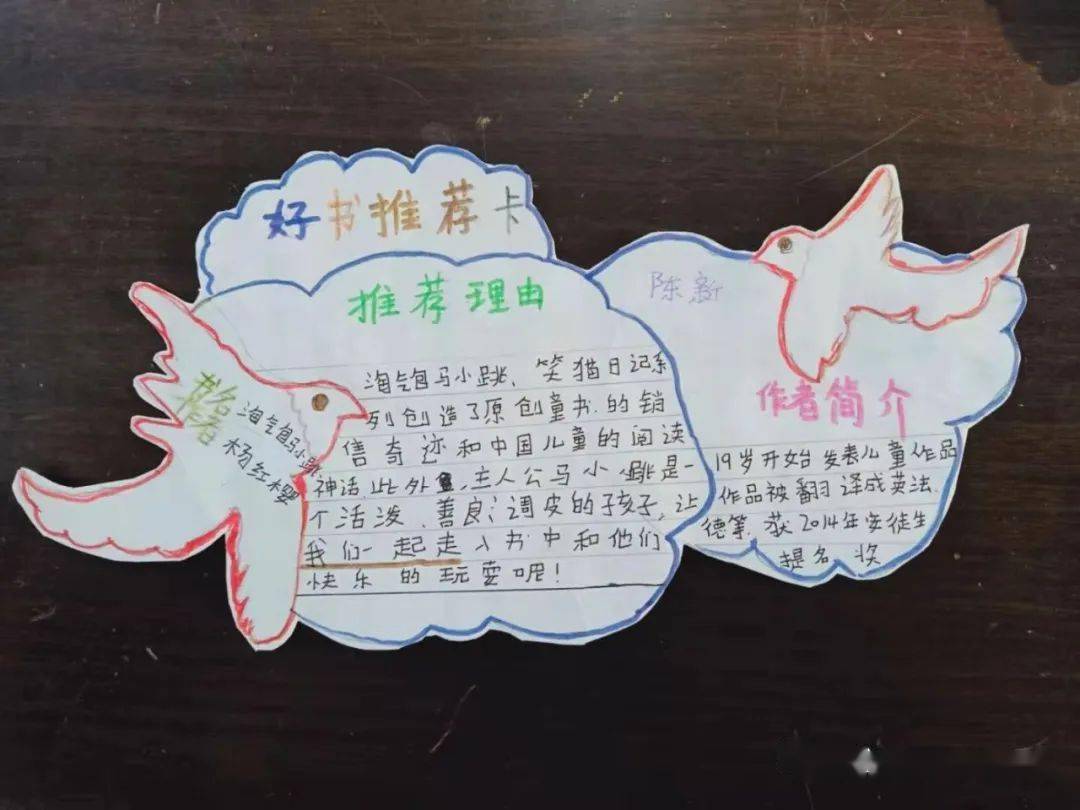 好书推荐卡
推荐理由
淘气包马小跳、笑猫日记系
列创造了原创童书的销
售奇迹和中国儿童的阅读
神话,此外,主人公马小跳是一
个活泼、善良、调皮的孩子,让
我们一起走入书中和他们
快乐的玩耍呢!
书名
淘气包马小跳
作者
杨红樱
陈新
作者简介
19岁开始发表儿童作品
作品被翻译成英、法、
德等,获2014年安徒生
提名奖